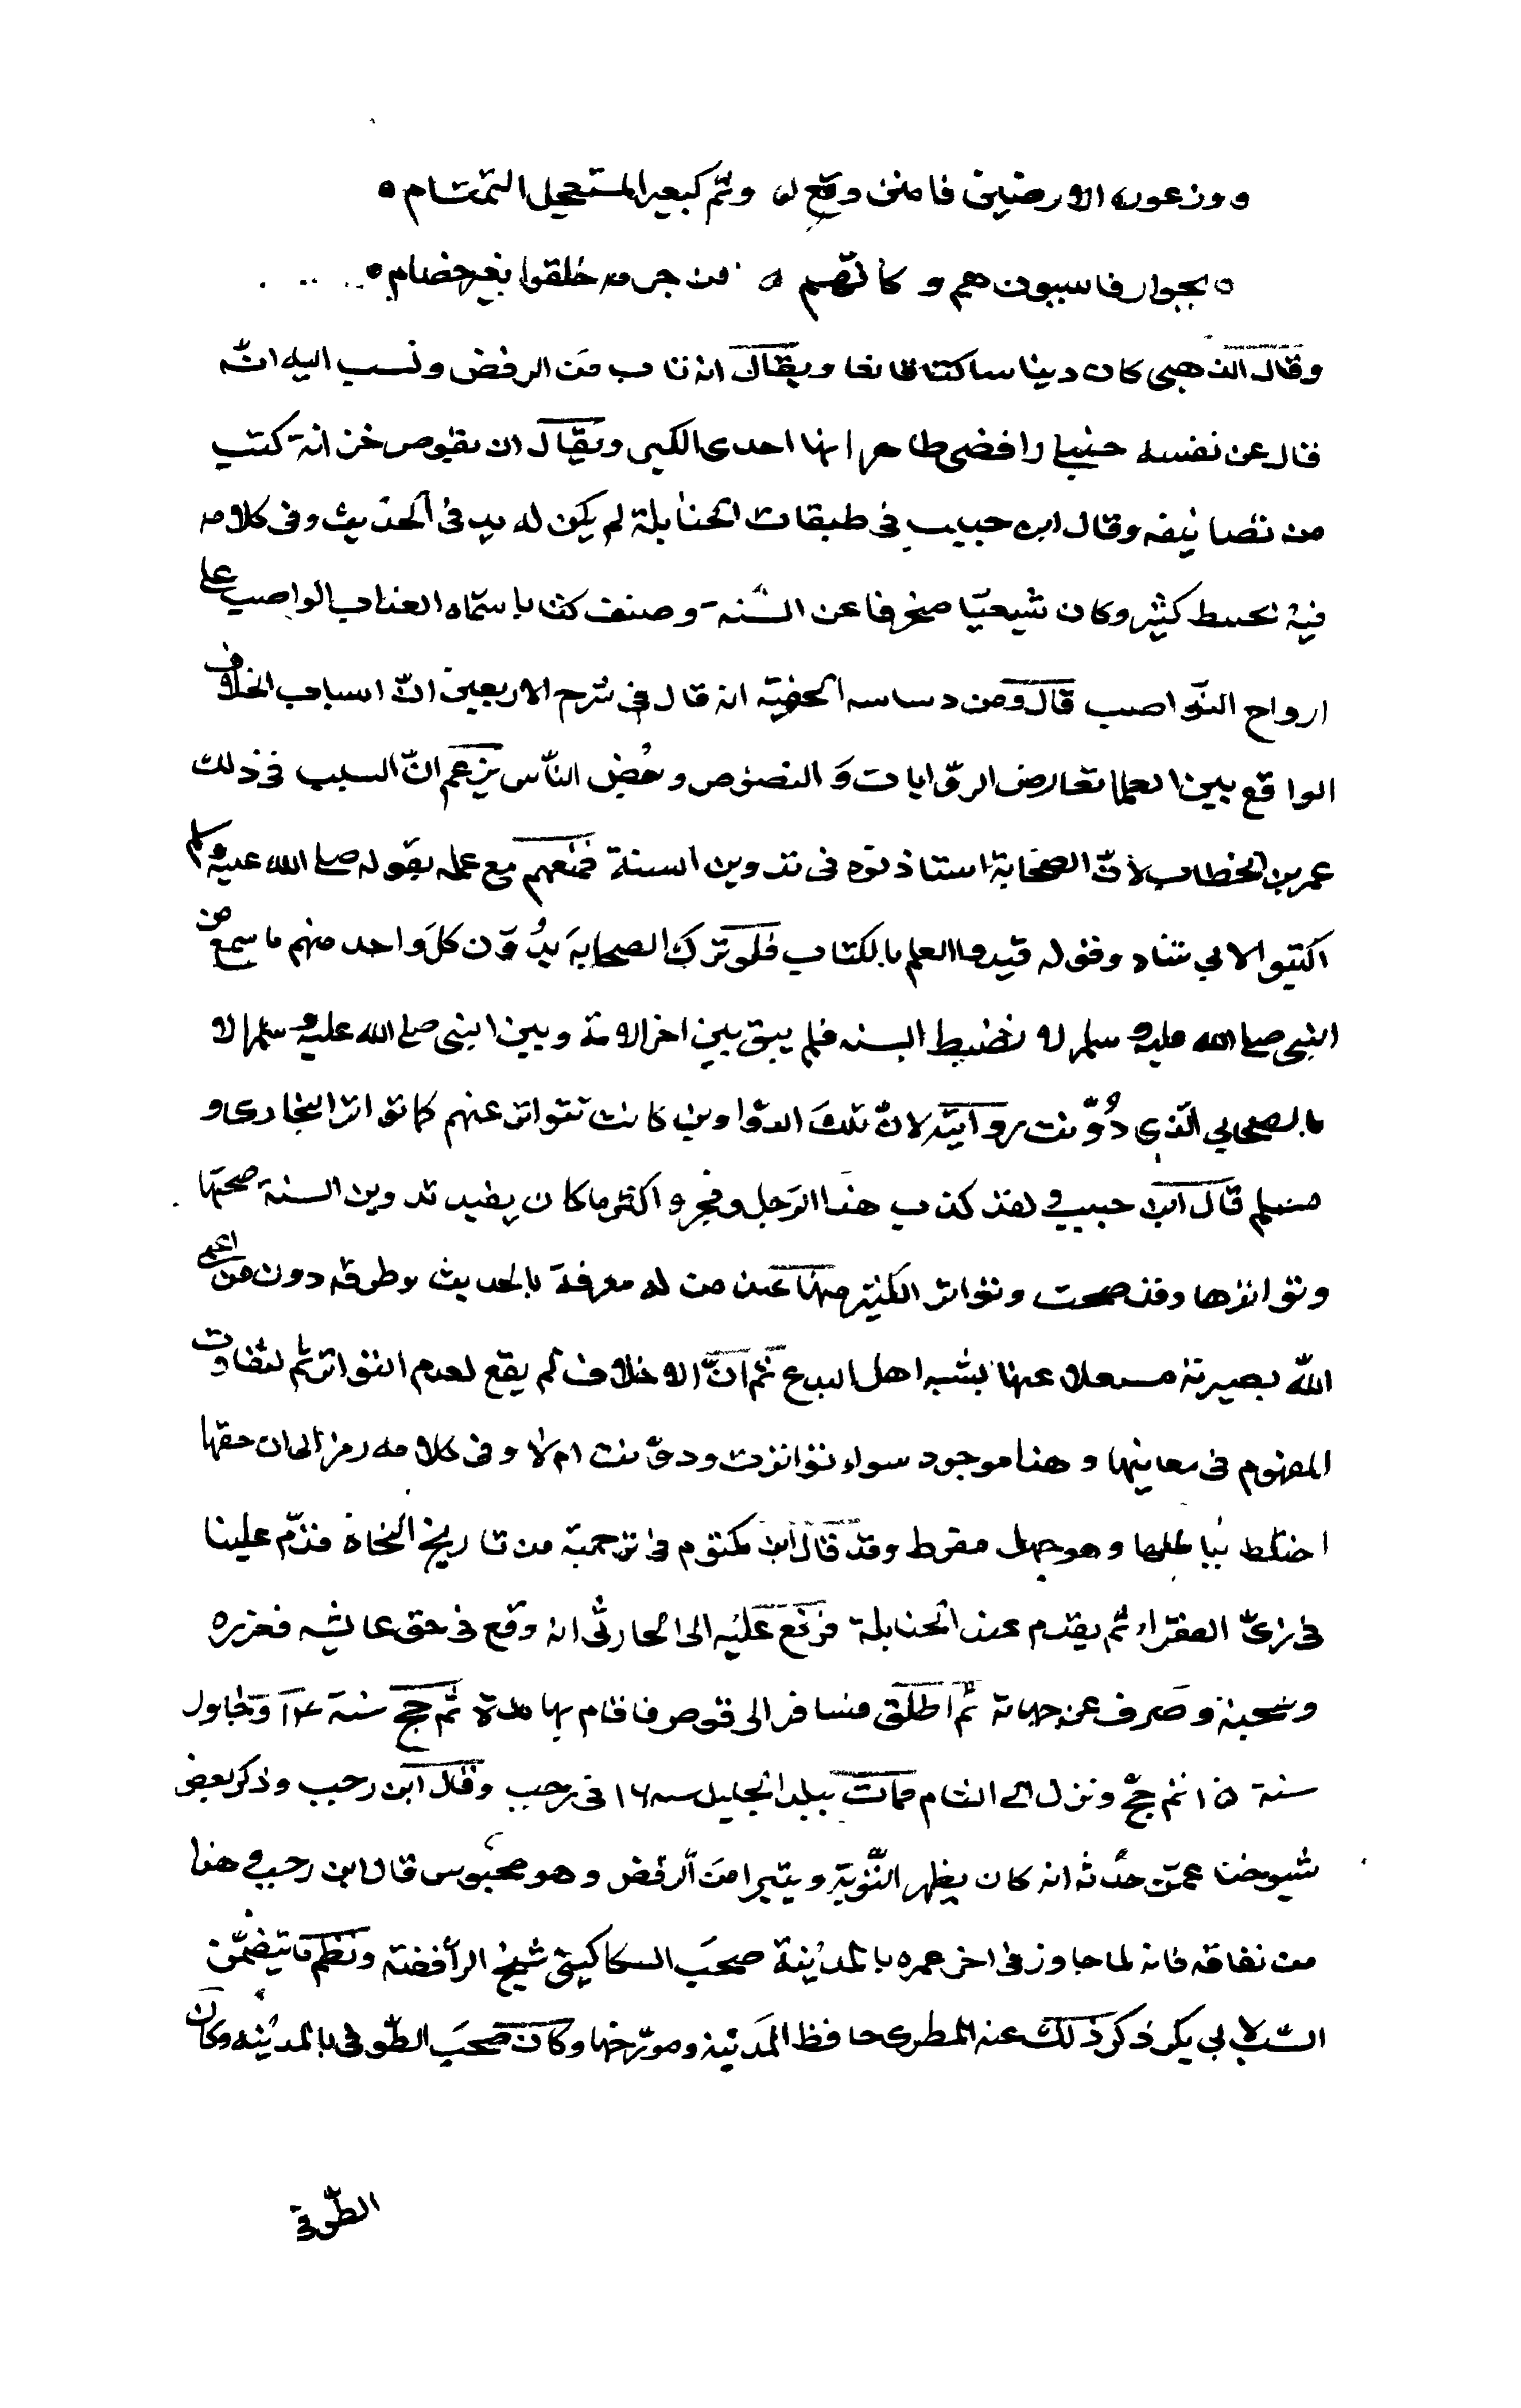 ووزعوره الارضين فامتى وقع له وثم كبعير المستعجل التمتام ه
ه بجوار فاسبون هم و كانهم ه من جرمه خلقوا بغير خصام ه
وقال الذهبى كان دينا ساكنا قانعا ويقال انه تاب من الرفض ونسب اليه انّه
قال عن نفسه حنبلي رافضى ظاهرا انها احدى الكبر ويقال ان بقوص خزانة كتب
من تصانيفه وقال ابن حبيب فى طبقات الحنابلة لم يكن له يد فى الحديث وفى كلامه
فيه تخبيط كثير وكان شيعيّا منحرفا عن السّنة وصنف كتابا سمّاه العذاب الواصب على
ارواح النّواصب قال ومن دسائسه الخفيّة انه قال فى شرح الاربعين انّ اسباب الخلاف
الواقع بين العلما تعارض الرّوايات وَ النصوص وبعض النّاس يزعم انّ السبب فى ذلك
عمر بن الخطاب لانّ الصحابة استاذنوه فى تدوين السنة فمنعهم مع علمه بقوله صلى الله عليه وسلم
اكتبوا لابي شاه وقوله قيدوا العلم بالكتاب فلو ترك الصحابة يدُوّن كلّ واحد منهم ما سمع من
النبى صلى الله عليه و سلم لا نضبط السنه فلم يبق بين اخر الامة وبين النبى صلى الله عليه وسلم الا
الصحابي الّذي دُوّنت روايته لانّ تلك الدّواوين كانت تتواتر عنهم كما تواتر البخارى و
مسلم قال ابن حبيب و لقد كذب هذا الرّجل وفجر و اكثر ما كان يفيد تدوين السنة صحتها
وتواترها وقد صحت وتواتر الكثير منها عند من له معرفة بالحديث وطرقه دون من اعمى
اللّه بصيرته مشتغلا عنها بشبه اهل البدع ثم انّ الاختلاف لم يقع لعدم التواتر ثم لتفاوت
المفهوم فى معانيها و هذا موجود سواء تواترت ودوّنت ام لا وفى كلامه رمز الى ان حقها
اختلط بباطلها وهو جهل مفرط وقد قال ابن مكتوم فى ترجمته من تاريخ النحاة قدّم علينا
فى زىّ الفقراء ثم تقدم عند الحنابلة فرفع عليه الى الحارثى انه وقع فى حق عائشه فعزره
وسجنه و صُرف عن جهاته ثم اطلق فسافر الى قوص فاقام بها مدة ثم حج سنة ١٤ وتجاور
سنة ١٥ ثم حجّ ونزل الى الشام فمات ببلد الخليل سنه ١٦ فى رجب وقال ابن رجب وذكر بعض
شيوخنا عمّن حدّثه انه كان يظهر التّوبة و يتبرا من الرفض و هو محبوس قال ابن رجب و هذا
من نفاقه فانه لما جاوز فى اخر عمره بالمدينة صحب السكاكينى شيخ الرافضة ونظم ما يتضمّن
السّب لابي بكر ذكر ذلك عنه المطرى حافظ المدينة ومورّخها وكان صحب الطّوفى بالمدينه وكان
الطّوفى